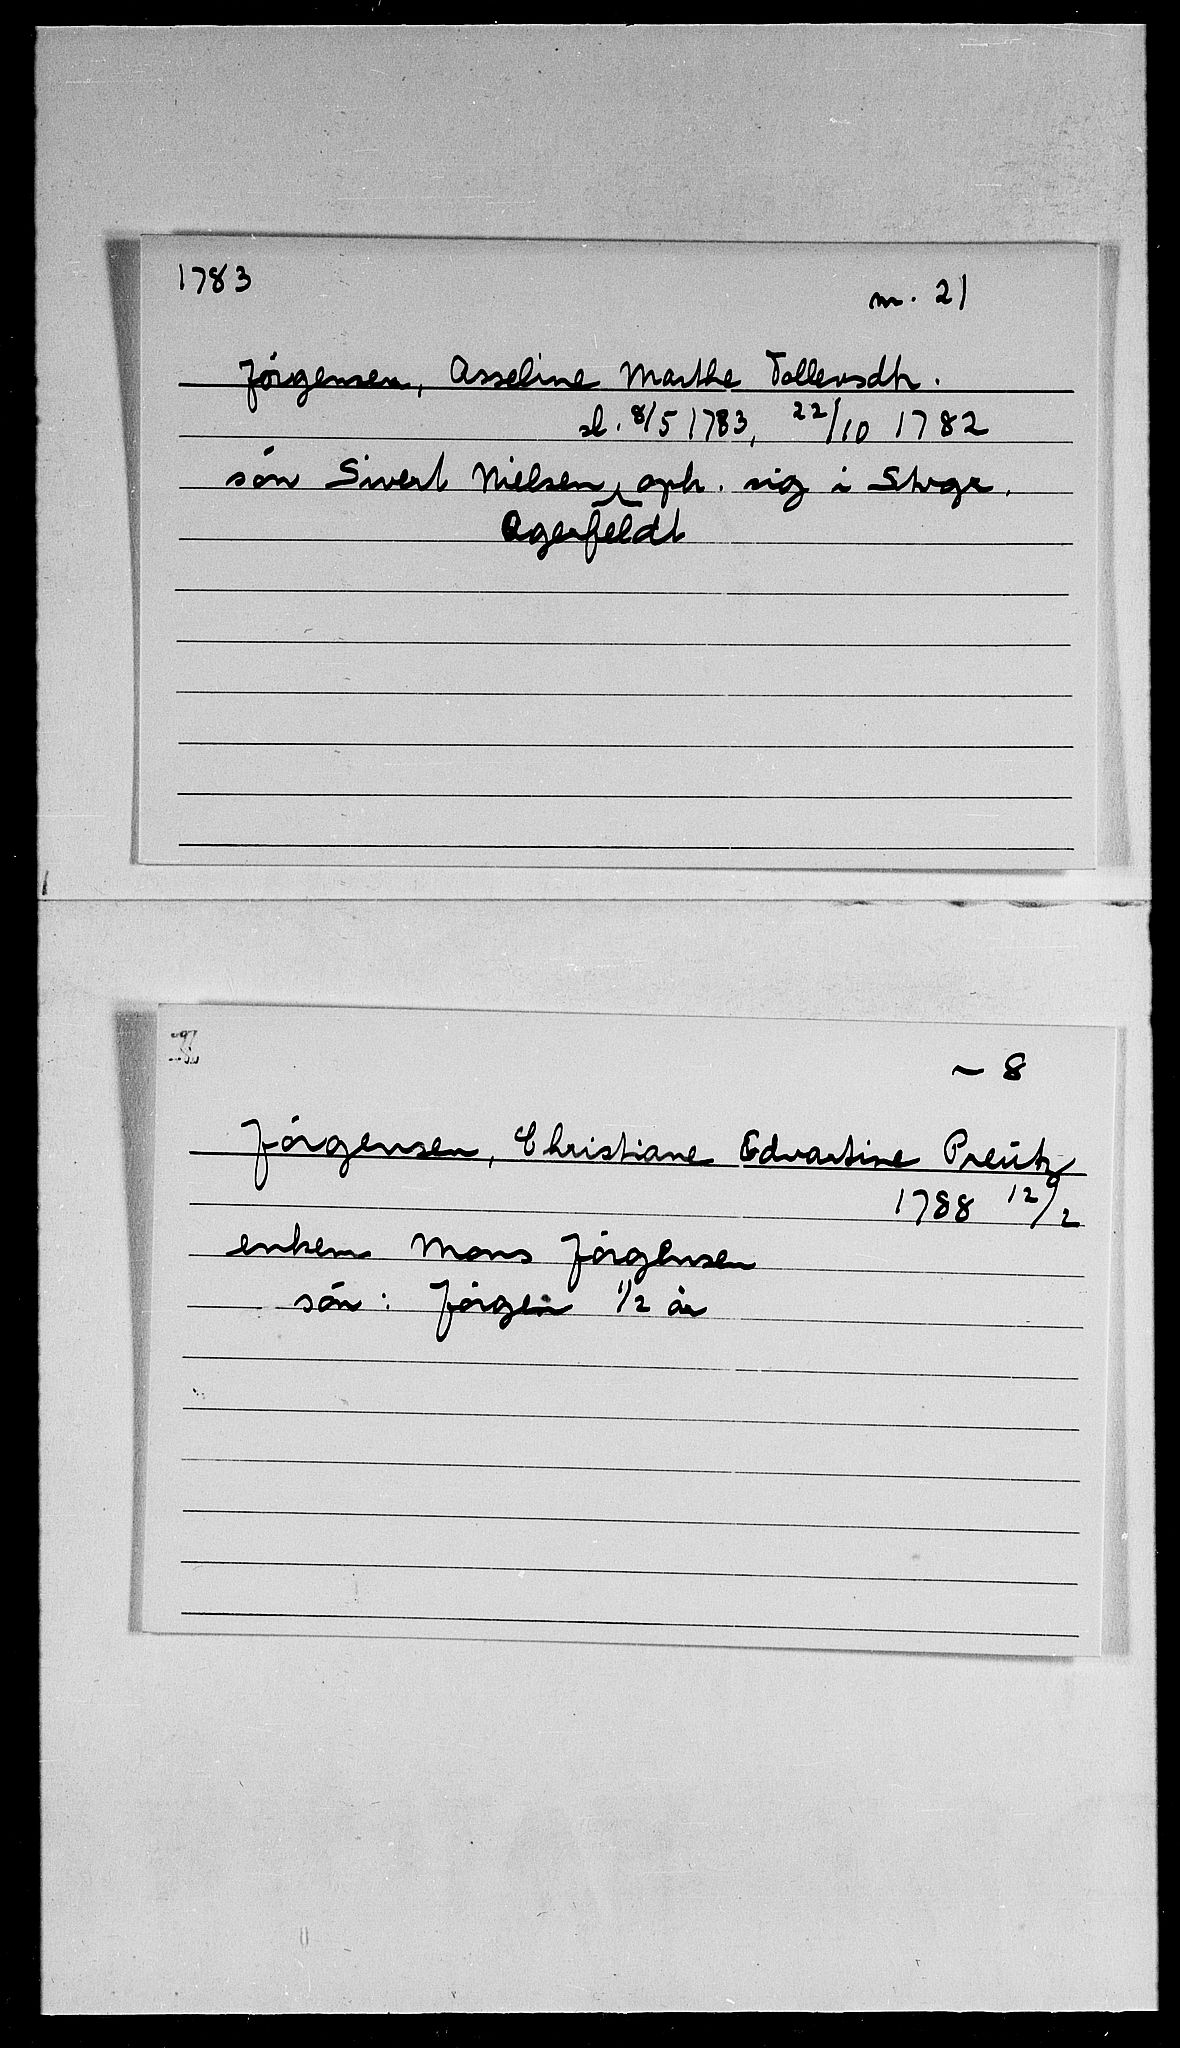 1783
nr. 21
Jörgensen, Asseline Marthe Tollevsdtr.
sl. 8/5 1783, 22/10 1782
sön Sivert Nielsen oph. sig i Stvgr.
Agerfeldt
~ 8
Jörgensen, Christiane Edvartine Preütz
1788 12/2
enkem. Mons Jörgensen
sön: Jörgen 1/2 år